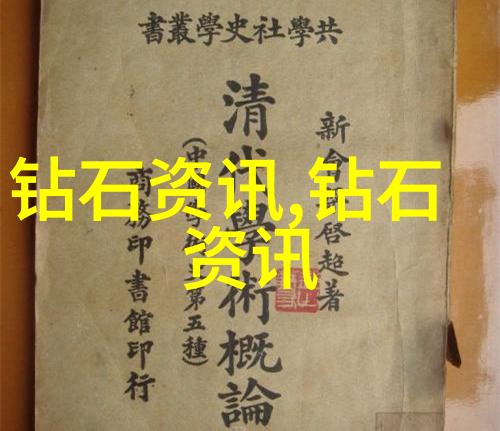 共學社史學叢書
新會梁啓超著
清代學術概論
(中國學術史第五種)
商務印書館印行
钻石资讯,钻石
资讯